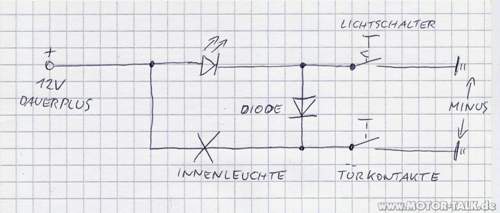 LICHTSCHALTER
+
12V
DAUERPLUS
DIODE
MINUS
INNENLEUCHTE
TÜRKONTAKTE
www.MOTOR-TALK.de